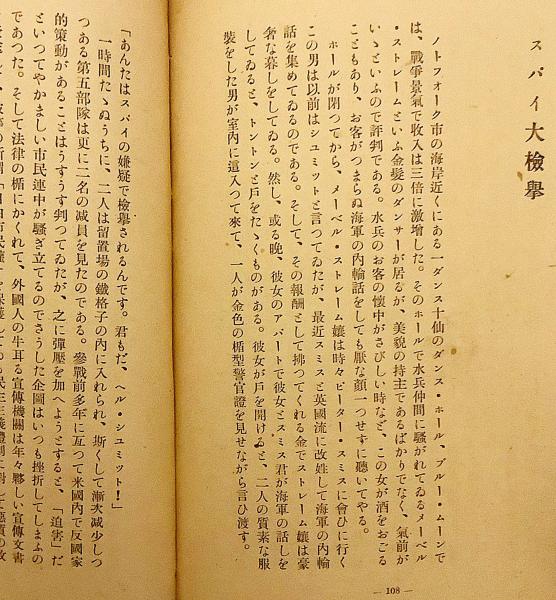 スパイ大檢擧
ノトフオーク市の海岸近くにある一ダンス十仙のダンス・ホール、ブルー・ムーンで
は、戰爭景氣で收入は三倍に激增した。そのホールで水兵仲間に騷がれてゐるメーベル
・ストレームといふ金髮のダンサーが居るが、美貌の持主であるばかりでなく、氣前が
いゝといふので評判である。水兵のお客の懷中がさびしい時など、この女が酒をおごる
こともあり、お客がつまらぬ海軍の內輪話をしても厭な顏一つせずに聽いてやる。
ホールが閉つてから、メーベル・ストレーム孃は時々ピーター・スミスに會ひに行く
この男は以前はシユミットと言つてゐたが、最近スミスと英國流に改姓して海軍の內輪
話を集めてゐるのである。そして、その報酬として拂つてくれる金でストレーム孃は豪
奢な暮しをしてゐる。然し、或る晚、彼女のアパートで彼女とスミス君が海軍の話しを
してゐると、トントンと戶をたゝくものがある。彼女が戶を開けると、二人の質素な服
裝をした男が室內に這入つて來て、一人が金色の楯型警官證を見せながら言ひ渡す。
— 108 —
「あんたはスパイの嫌疑で檢擧されるんです。君もだ、ヘル・シユミット！」
一時間たゝぬうちに、二人は留置場の鐵格子の內に入れられ、斯くして漸次減少しつ
つある第五部隊は更に二名の減員を見たのである。參戰前多年に亙つて米國內で反國家
的策動があることはうすうす判つてゐたが、之に彈壓を加へようとすると、「迫害」だ
といつてやかましい市民連中が騷ぎ立てるのでさうした企圖はいつも挫折してしまふの
であつた。そして法律の楯にかくれて、外國人の牛耳る宣傳機關は年々夥しい宣傳文書